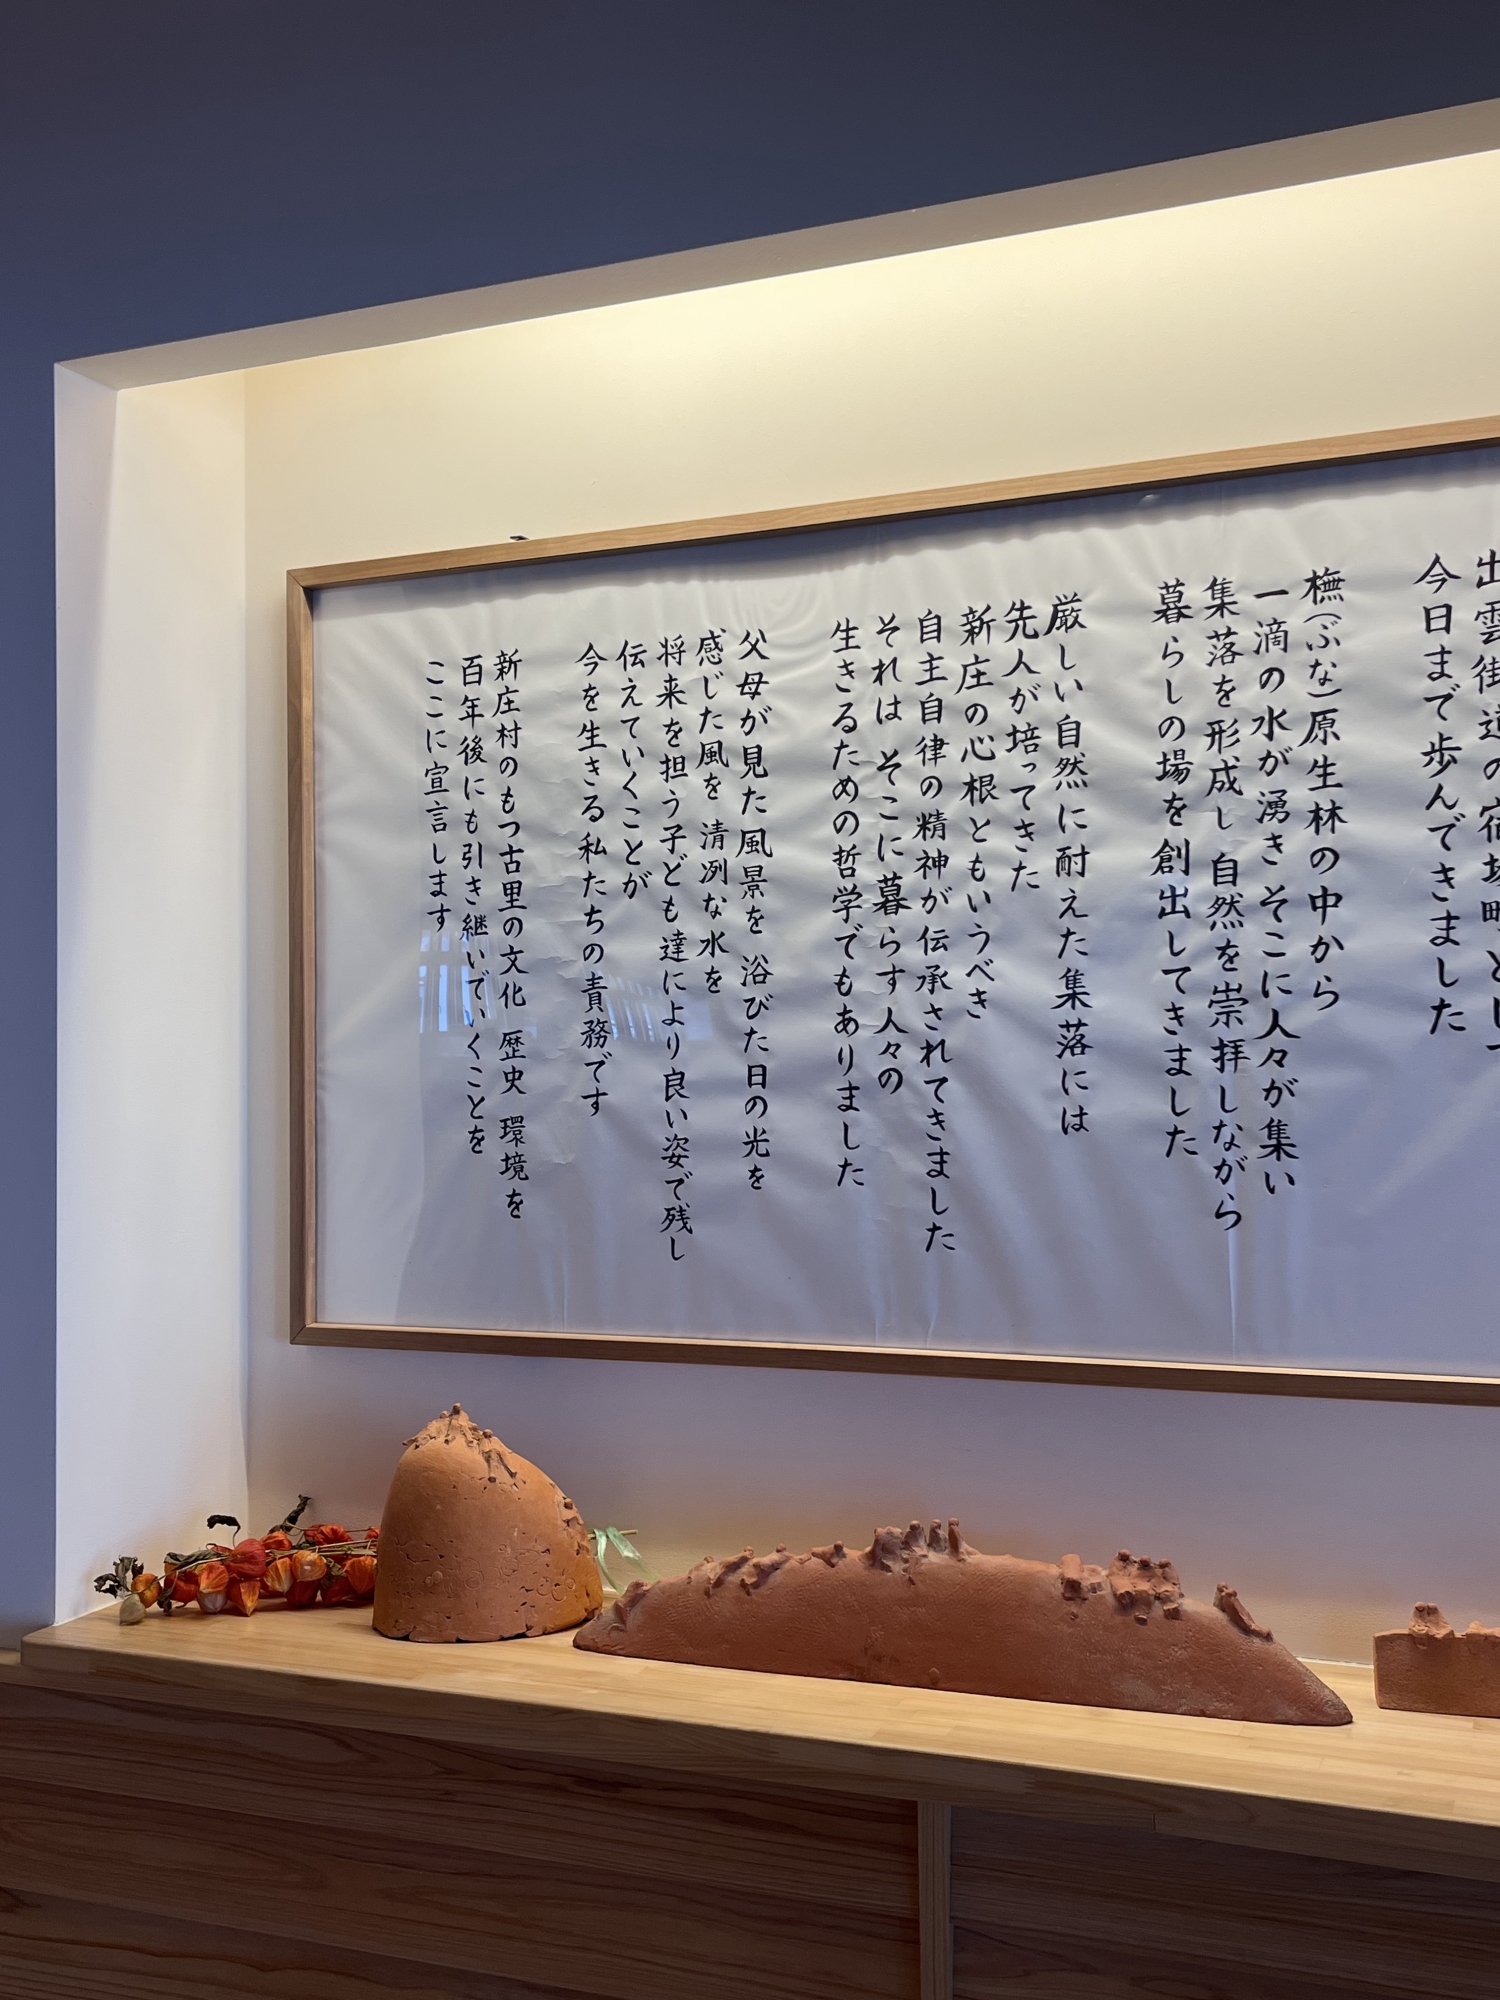 出雲街道の宿場町として
今日まで歩んできました
橅(ぶな)原生林の中から
一滴の水が湧きそこに人々が集い
集落を形成し 自然を崇拝しながら
暮らしの場を創出してきました
厳しい自然に耐えた集落には
先人が培ってきた
新庄の心根ともいうべき
自主自律の精神が伝承されてきました
それは そこに暮らす人々の
生きるための哲学でもありました
父母が見た風景を 浴びた日の光を
感じた風を 清冽な水を
将来を担う子ども達により良い姿で残し
伝えていくことが
今を生きる私たちの責務です
新庄村のもつ古里の文化 歴史 環境を
百年後にも引き継いでいくことを
ここに宣言します